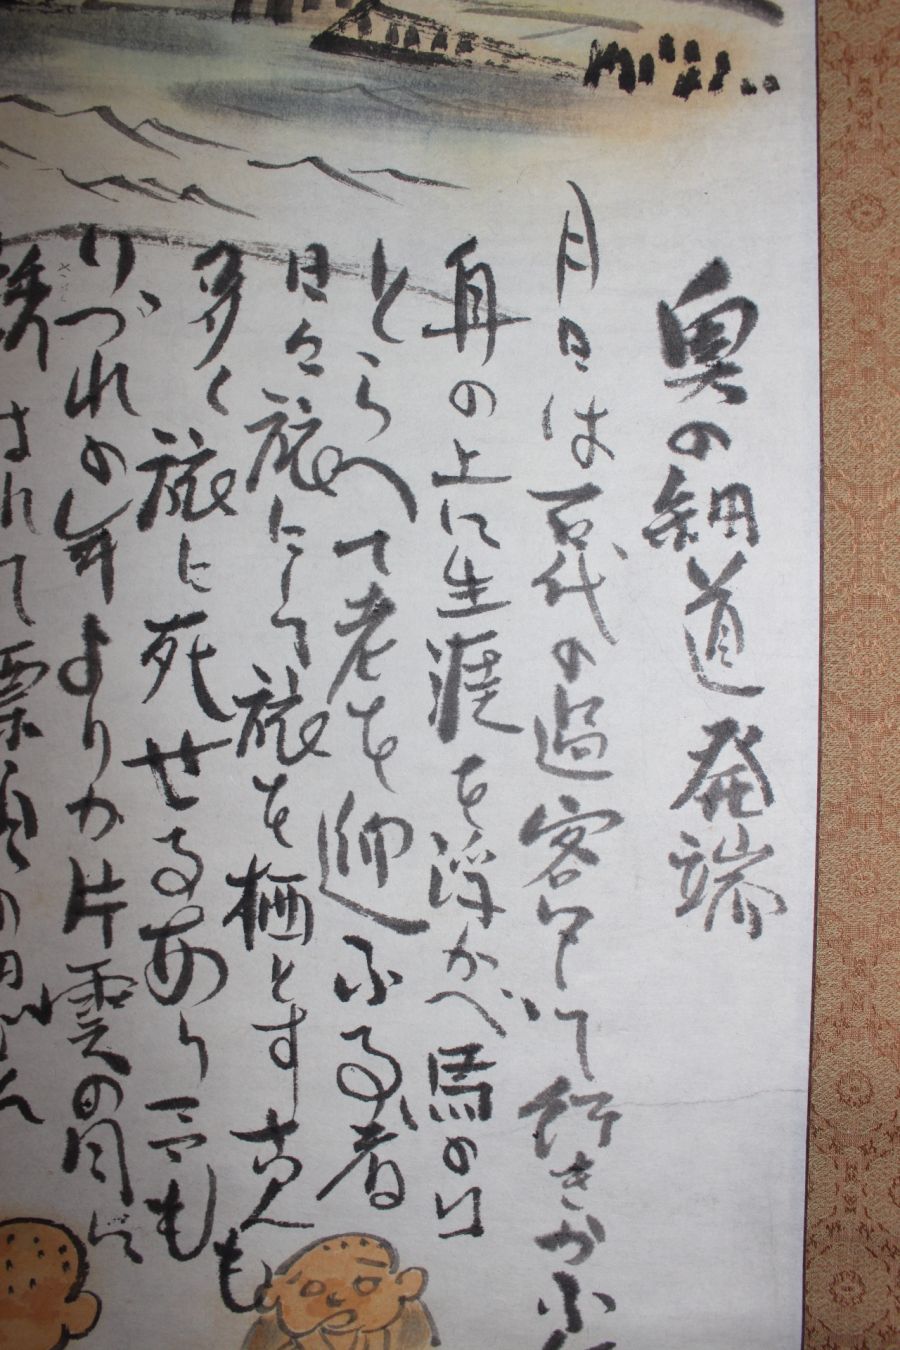 奥の細道 発端
月日は百代の過客にして行きかふ
舟の上に生涯を浮かべ馬の口
とらへて老を迎ふる者
日々旅にして旅を栖とす古人も
多く旅に死せるあり
づれの年よりか片雲の
されて漂